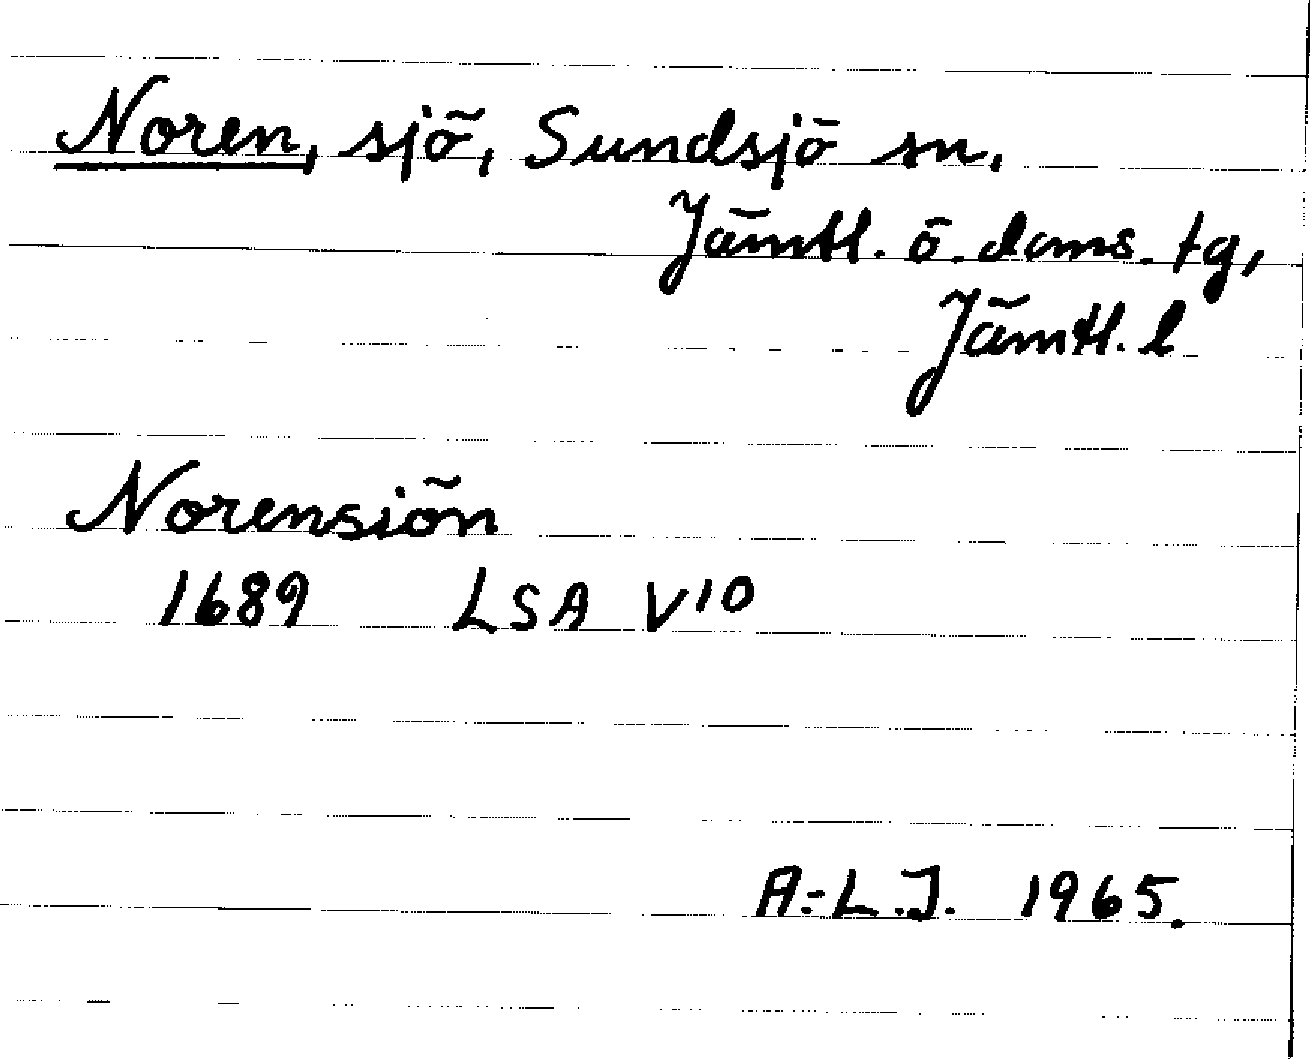 Noren, sjö, Sundsjö sn,
Jämtl. ö. doms. tg,
Jämtl. l
Norensiön
1689 LSA V10
A.-L.J. 1965.